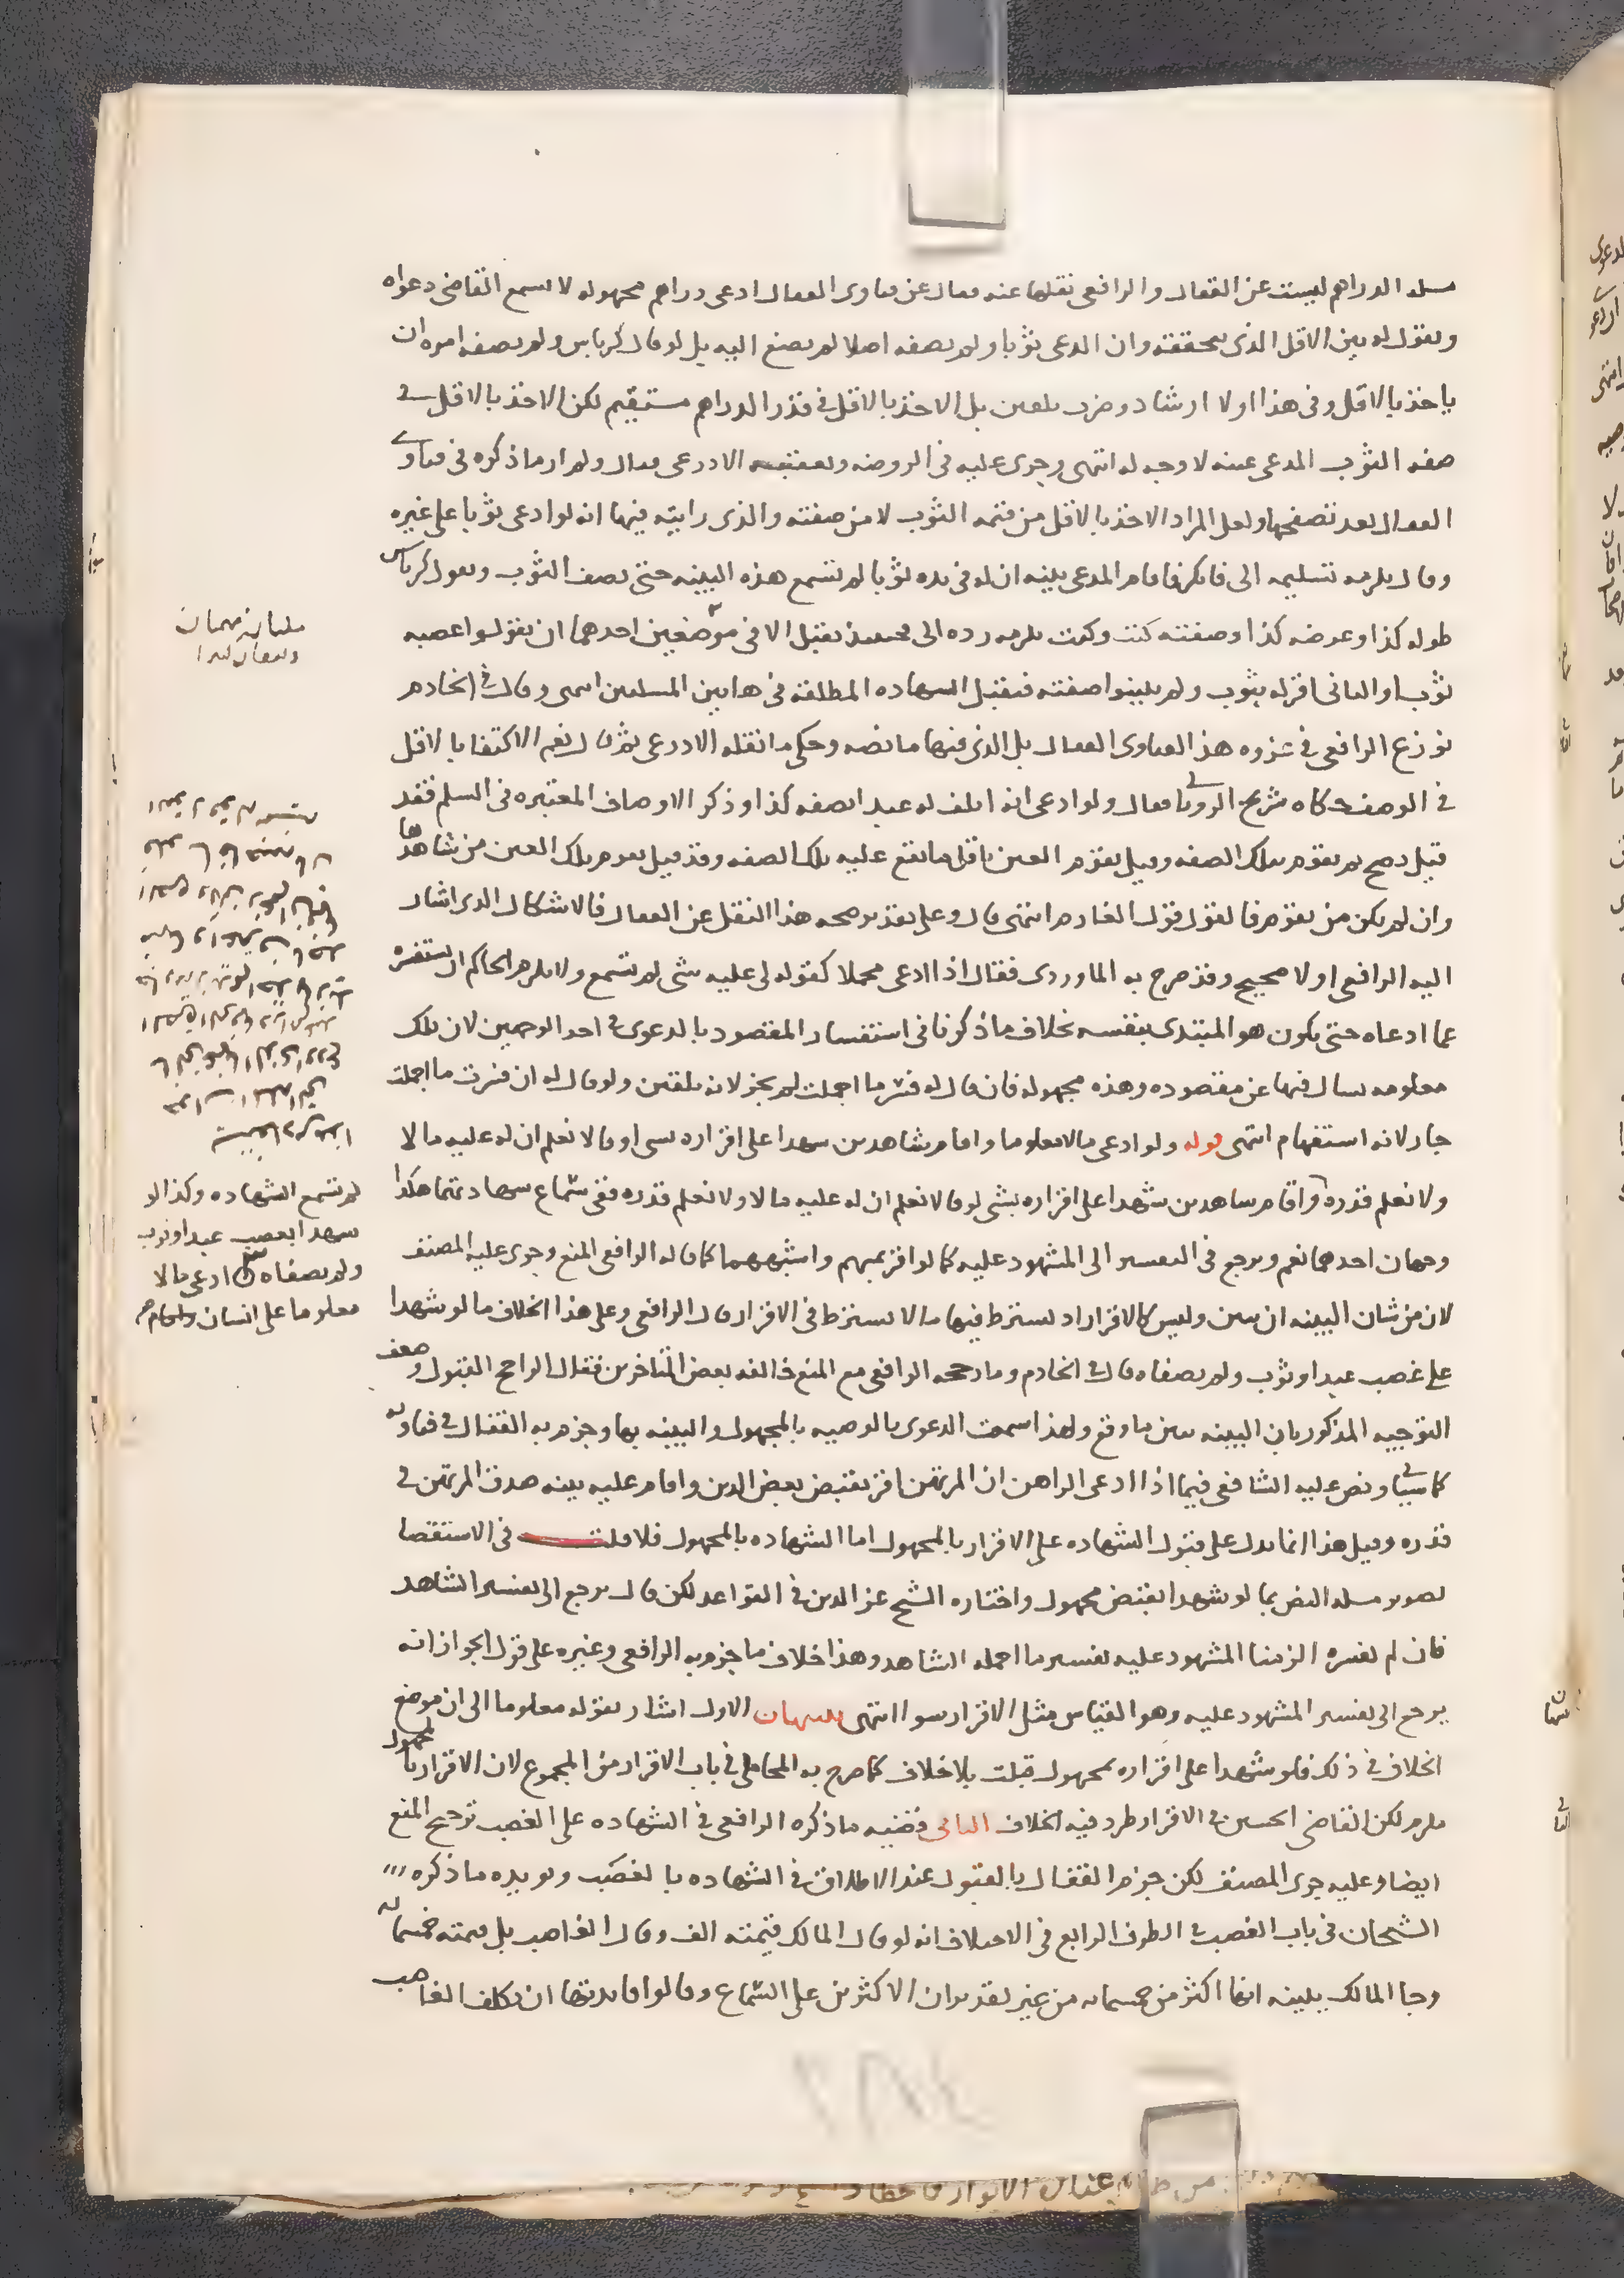 مسله الدراهم ليست عن القفال والرافعي نقلها عنه فقال عن فتاوى القفال ادعى دراهم مجهوله لا يسمع القاضي دعواه
ويقول له بين الاقل الذي يتحققه وان ادعى ثوبا ولم يصفه اصلا لم يصغ اليه بل لو قال كرباس ولم يصفه امره ان
ياخذ بالاقل وفي هذا اولا ارشاد وضرب تلقين بل الاخذ بالاقل في قدر الدراهم مستقيم لكن الاخذ بالاقل في
صفه الثوب المدعى عينه لا وجه له انتهى وجرى عليه في الروضه وتعقبه الاذرعي فقال ولم ار ما ذكره في فتاوى
القفال بعد تصفحها ولعل المراد الاخذ بالاقل من قيمه الثوب لا من صفته والذي رايته فيها انه لو ادعى ثوبا على غيره
وقال يلزمه تسليمه الي فانكر فاقام المدعي بينه ان له في يده ثوبا لم تسمع هذه البينه حتى يصف الثوب ويقول كرباس
طوله كذا وعرضه كذا وصفته كيت وكيت يلزمه رده الى فحينئذ تقبل الا في موضعين احدهما ان يقولوا غصبه
ثوبا والثاني اقر له بثوب ولم يبينوا صفته فتقبل الشهاده المطلقه في هاتين المسلتين انتهى وقال في الخادم
نوزع الرافعي في عزوه هذا لفتاوى القفال بل الذي فيها ما نصه وحكى ما نقله الاذرعي ثم قال نعم الاكتفا بالاقل
في الوصف حكاه شريح الروياني فقال ولو ادعى انه اتلف له عبدا بصفه كذا وذكر الاوصاف المعتبره في السلم فقد
قيل يصح ثم يقوم بتلك الصفه وقيل يقوم العين باقل ما تقع عليه تلك الصفه وقد قيل يقوم تلك العين من شاهدها
وان لم يكن من يقوم فالقول قول الغارم انتهى قال وعلى تقدير صحه هذا النقل عن القفال فالاشكال الذي اشار
اليه الرافعي اولا صحيح وقد صرح به الماوردي فقال اذا ادعى مجملا كقوله لي عليه شي لم تسمع ولا يلزم الحاكم ان يستفسره
عما ادعاه حتى يكون هو المبتدي بنفسه بخلاف ما ذكرنا في استفسار المقصود بالدعوى في احد الوجهين لان تلك
معلومه يسال فيها عن مقصوده وهذه مجهوله فان قال له فسر ما اجملت لم يجز لانه تلقين ولو قال له ان فسرت ما اجملت
جاز لانه استفهام انتهى قوله ولو ادعى مالا معلوما واقام شاهدين شهدا على اقراره بشي او قالا نعلم ان له عليه مالا
ولا نعلم قدره واقام شاهدين شهدا على اقراره بشي او قالا نعلم ان له عليه مالا ولا نعلم قدره ففي سماع شهادتهما هكذا
وجهان احدهما نعم ويرجع في التفسير الى المشهود عليه كما لو اقر بمبهم واشبههما كما قاله الرافعي المنع وجرى عليه المصنف
لان من شان البينه ان تبين وليس كالاقرار اذ يشترط فيها ما لا يشترط في الاقرار قال الرافعي وعلى هذا الخلاف ما لو شهدا
على غصب عبد او ثوب ولم يصفاه قال في الخادم وما رجحه الرافعي مع المنع خالفه بعض المتاخرين فقال الراجح القبول وضعف
التوجيه المذكور بان البينه تبين ما وقع ولهذا سمعت الدعوى بالوصيه بالمجهول والبينه بها وجزم به القفال في فتاويه
كما سياتي ونص عليه الشافعي فيما اذا ادعى الراهن ان المرتهن اقر بقبض بعض الدين واقام عليه بينه صدق المرتهن في
قدره وقيل هذا انما يدل على قبول الشهاده على الاقرار بالمجهول اما الشهاده بالمجهول فلا قلت في الاستقصا
تصوير مسله النص بما لو شهدا بقبض مجهول واختاره الشيخ عز الدين في القواعد لكن قال يرجع الى تفسير الشاهد
فان لم يفسره الزمنا المشهود عليه تفسير ما اجمله الشاهد وهذا خلاف ما جزم به الرافعي وغيره على قول الجواز انه
يرجع الى تفسير المشهود عليه وهو القياس مثل الاقرار سوا انتهى تنبيهان الاول اشار بقوله معلوما الى ان موضع
الخلاف في ذلك فلو شهدا على اقراره بمجهول قبلت بلا خلاف كما صرح به المحاملي في باب الاقرار من المجموع لان الاقرار بالمجهول
يلزم لكن القاضي الحسين في الاقرار طرد فيه الخلاف الثاني قضيه ما ذكره الرافعي في الشهاده على الغصب ترجيح المنع
ايضا وعليه جرى المصنف لكن جزم القفال بالقبول عند الاطلاق في الشهاده بالغصب ويويده ما ذكره
الشيخان في باب الغصب في الطرف الرابع في الاختلاف انه لو قال المالك قيمته الف وقال الغاصب بل قيمته خمسمايه
وجا المالك ببينه انها اكثر من خمسمايه من غير تقدير ان الاكثرين على السماع وقالوا فايدتها ان يكلف الغاصب
لم تسمع الشهاده وكذا لو
شهدا بغصب عبد او ثوب
ولم يصفاه ادعى مالا
معلوما على انسان واقام